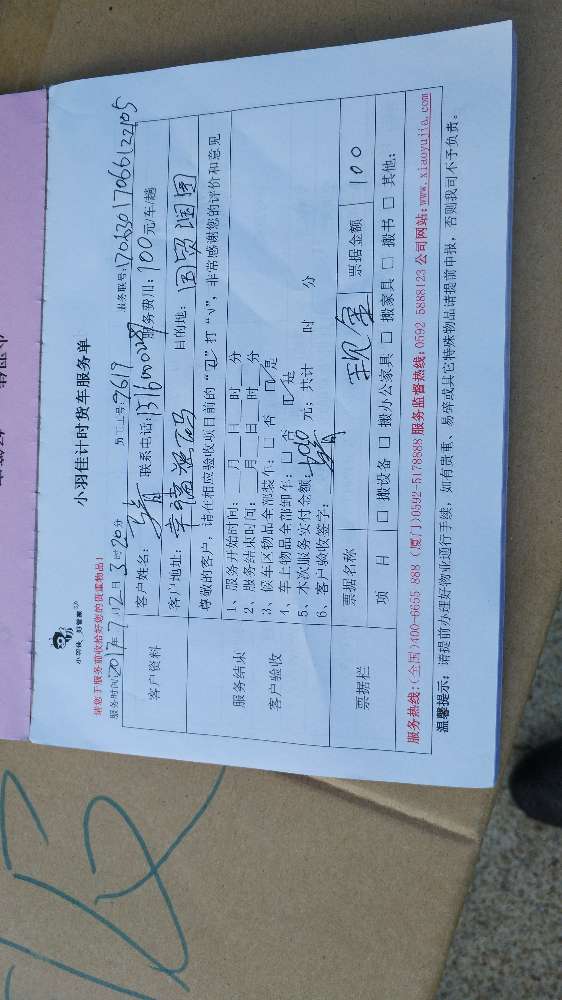 小羽佳计时货车服务单
小羽佳 好管家
请您于服务前收拾好您的贵重物品！
服务时间:2017年7月2日3时20分 员工工号:7617 服务账号:17063017066122105
客户资料
客户姓名: 联系电话: 服务费用: 100元/车/趟
客户地址: 幸福源码 目的地: 国贸润园
尊敬的客户，请在相应验收项目前的“☑”打“√”，非常感谢您的评价和意见
服务结束
客户验收
1、服务开始时间: 月 日 时 分
2、服务结束时间: 月 日 时 分
3、候车区物品全部装车: □ 否 ☑ 是
4、车上物品全部卸车: □ 否 ☑ 是
5、本次服务实付金额: 元; 共计 时 分
6、客户验收签字:
票据栏
票据名称 现金 票据金额 100
项 目 □ 搬设备 □ 搬办公家具 □ 搬家具 □ 搬书 □ 其他:
服务热线:(全国)400-6655 888 (厦门)0592-5178888 服务监督热线:0592 5888123 公司网站:www.xiaoyujia.com
温馨提示: 请提前办理好物业通行手续，如有贵重、易碎或其它特殊物品请提前申报，否则我司不予负责。